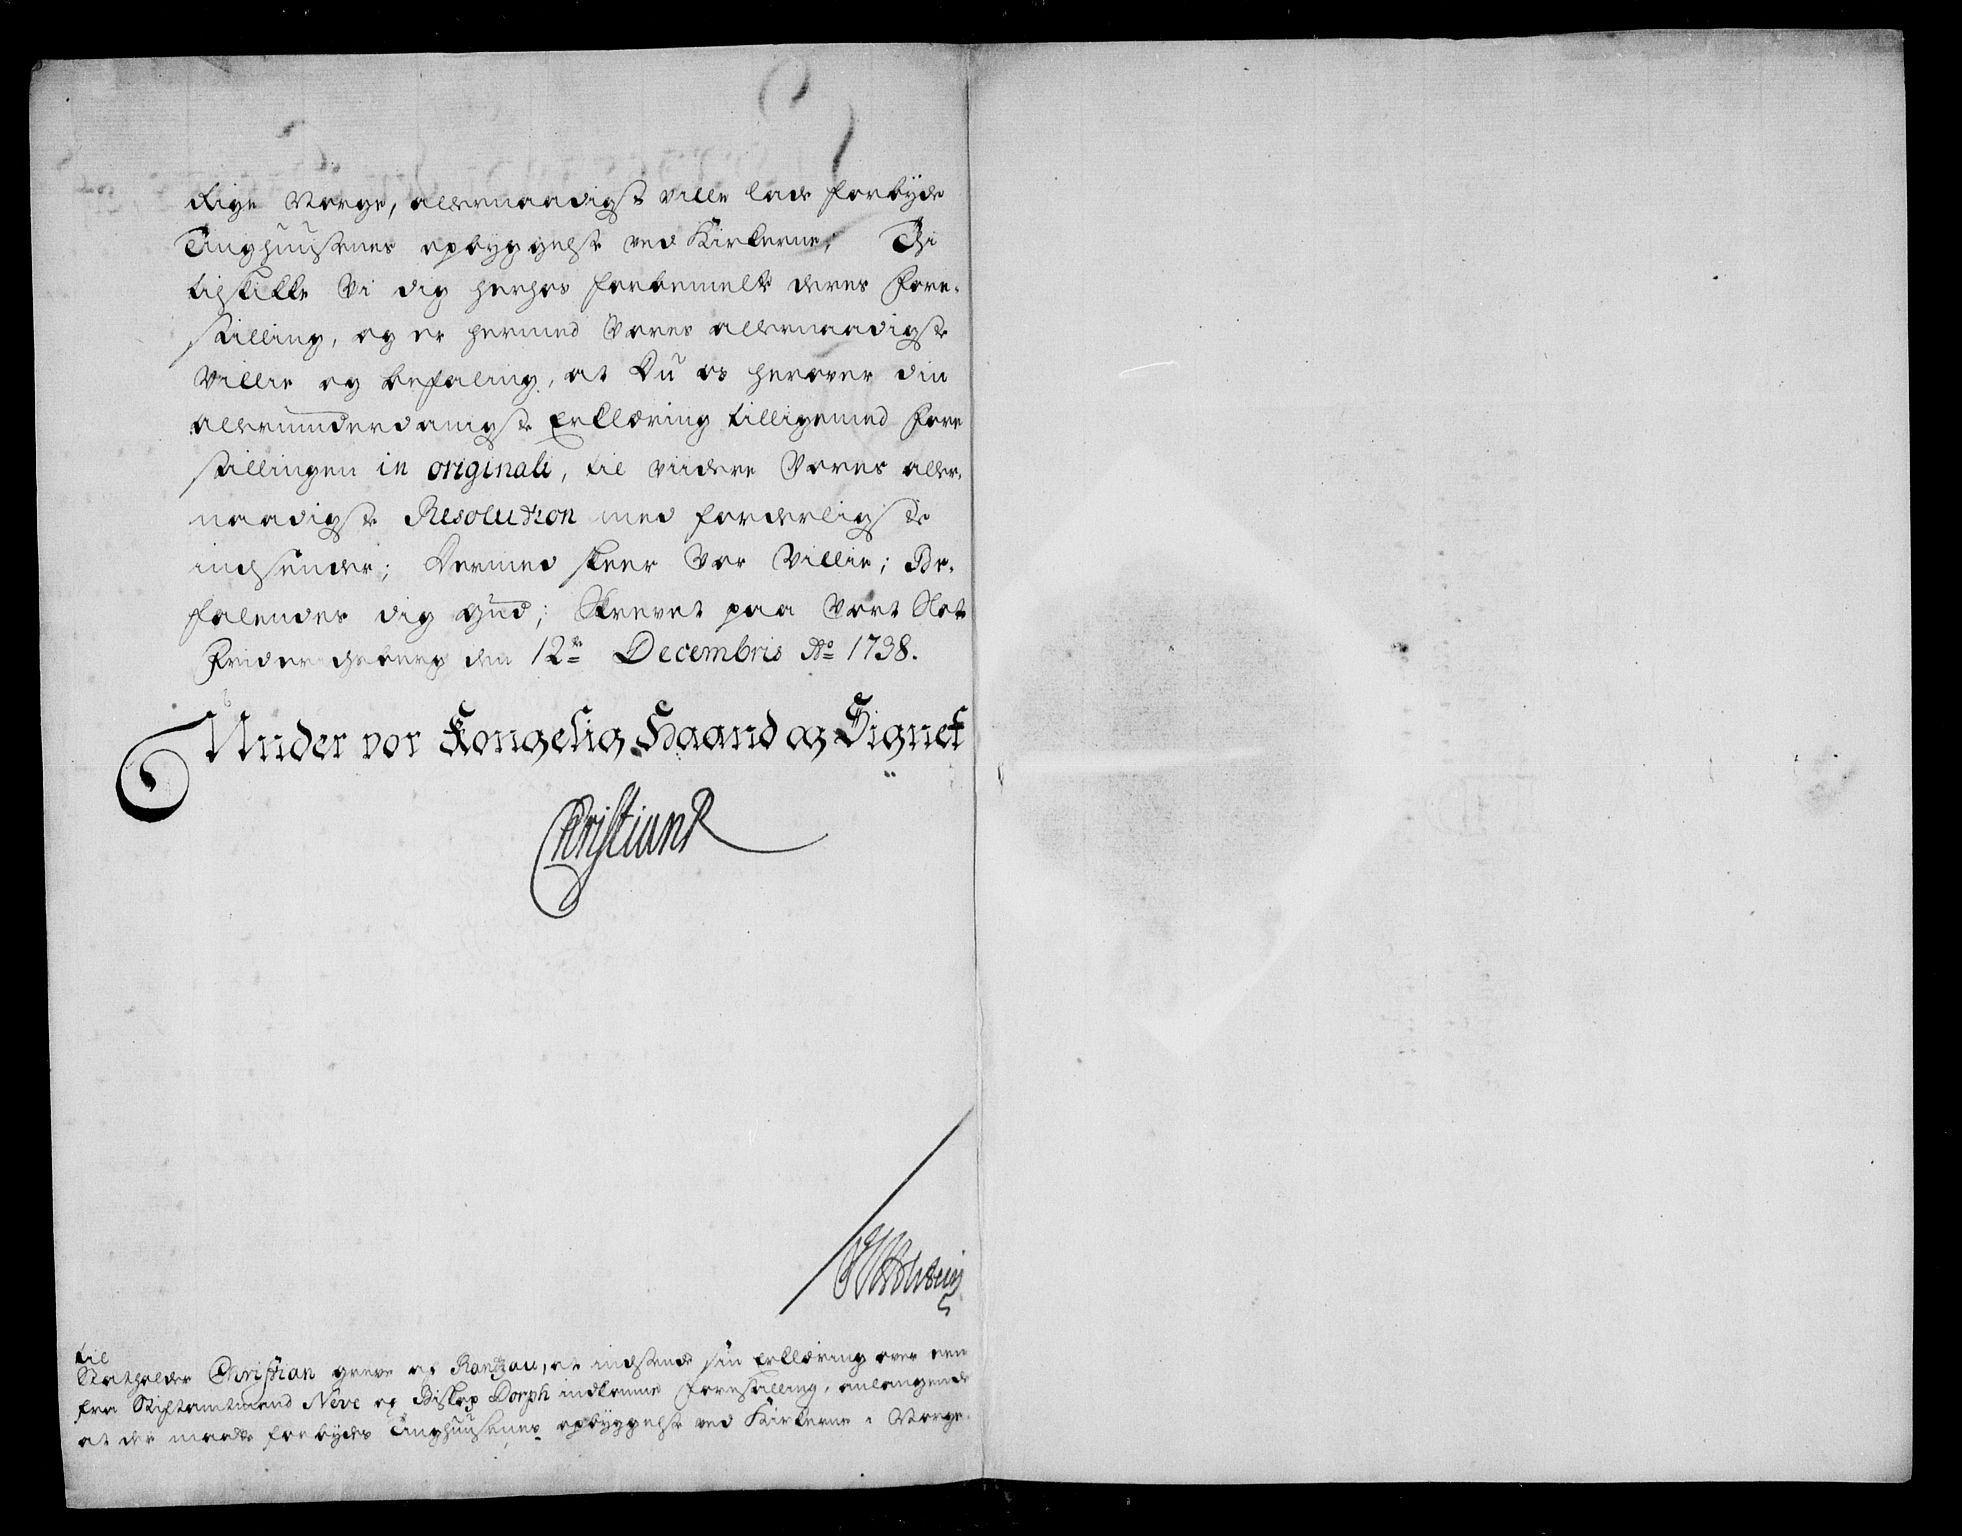 Rige Norge, allernaadigst ville lade forbyde
Tinghuusenes opbyggelse ved Kirkerne; Thi
tilskikke Vi dig herhos forbemelte deres Fore-
stilling, og er hermed Vores allernaadigste
Villie og befaling, at Du os herover din
allerunderdanigste Erklæring tilligemed Fore
stillingen in originali, til viidere Vores aller-
naadigste Resolution med forderligste
indsender; Dermed skeer Vor Villie; Be-
falendes dig Gud; Skrevet paa Vort Slot
Friderichsberg den 12te Decembris Ao 1738.
Under vor Kongelig Haand og Signet
Christian R
JLHolstein
til
Statholder Christian greve af Rantzau, at indsende sin Erklæring over een
fra Stiftamtmand Neve og Biskop Dorph indkomne forestilling, anlangende
at der maatte forbydes Tinghuusenes opbyggelse ved Kirkerne i Norge.